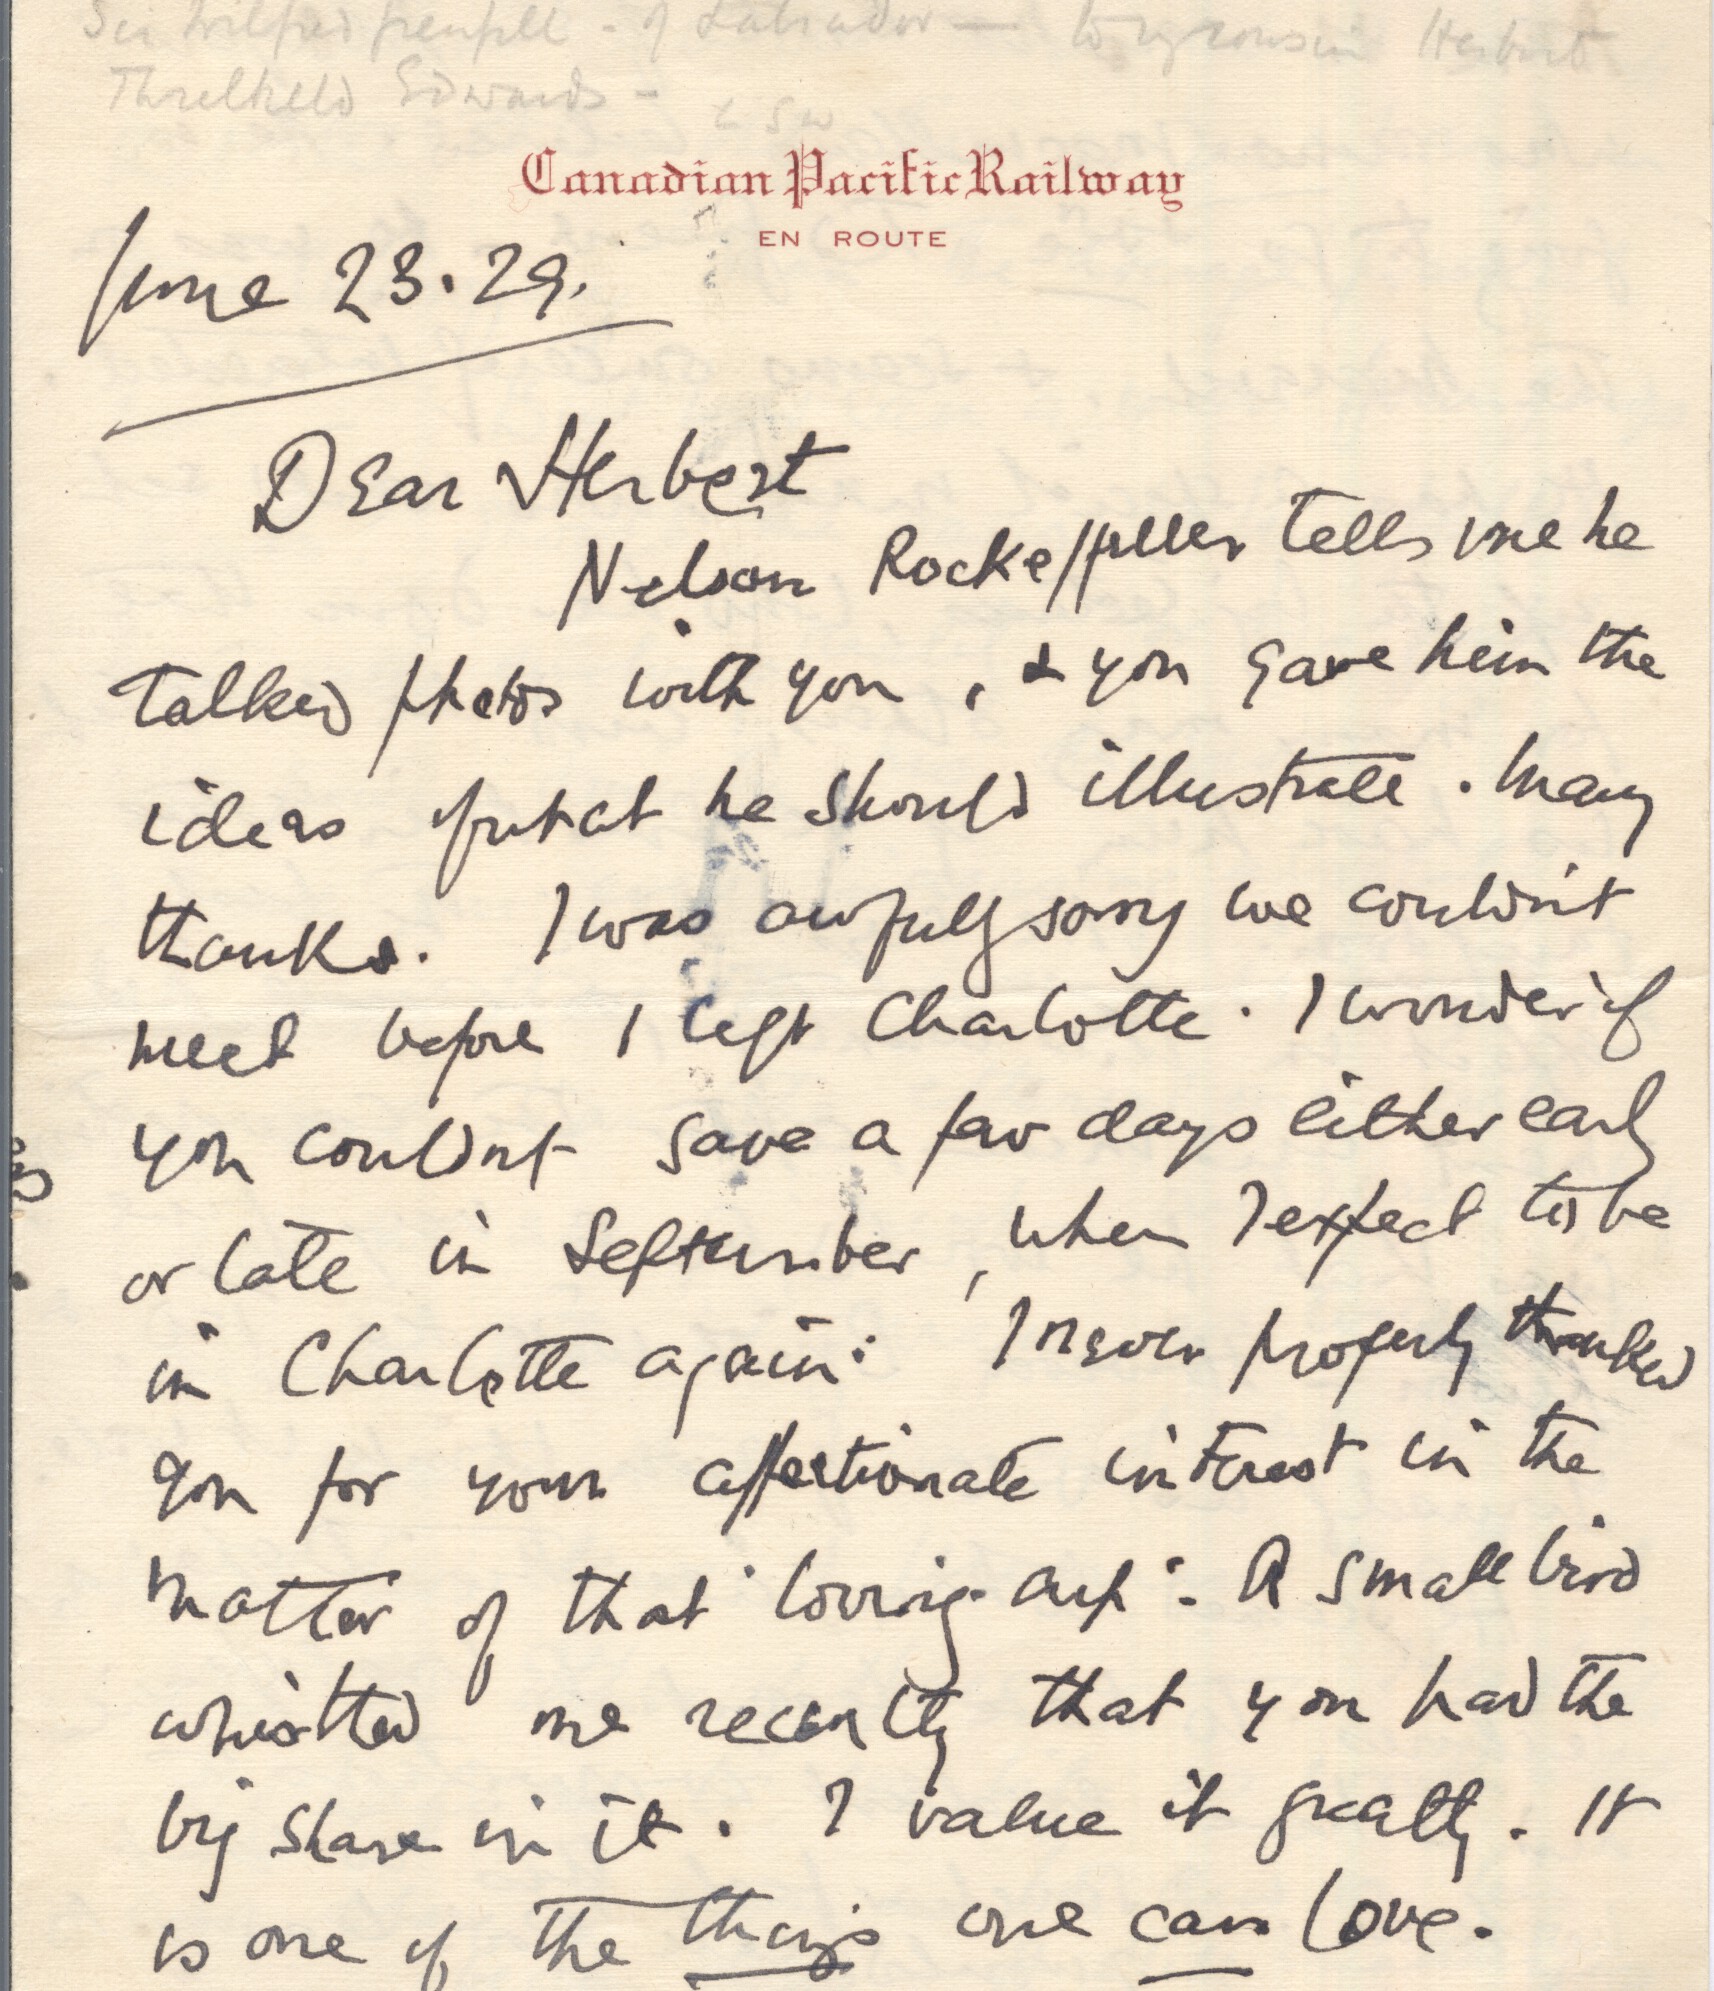 Sir Wilfred Grenfell - of Labrador — to my cousin Herbert
Threlkeld Edwards -
L S W
Canadian Pacific Railway
EN ROUTE
June 23.29.
Dear Herbert
Nelson Rockeffeller tells me he
talked photos with you, & you gave him the
ideas of what he should illustrate. Many
thanks. I was awfully sorry we couldn't
meet before I left Charlotte. I wonder if
you couldnt save a few days either early
or late in September, when I expect to be
in Charlotte again. I never properly thanked
you for your affectionate interest in the
matter of that 'loving cup'. A small bird
whistled me recently that you had the
big share in it. I value it greatly. It
is one of the things one can love.